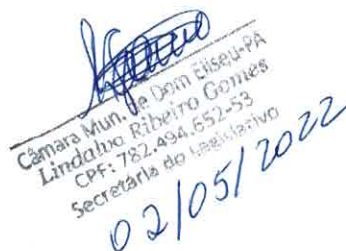 Câmara Mun. de Dom Eliseu-PA
Lindalno Ribeiro Gomes
CPF: 782.494.652-53
Secretária do Legislativo
02/05/2022